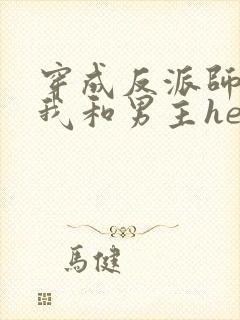 穿成反派師
我和男主he
馬健